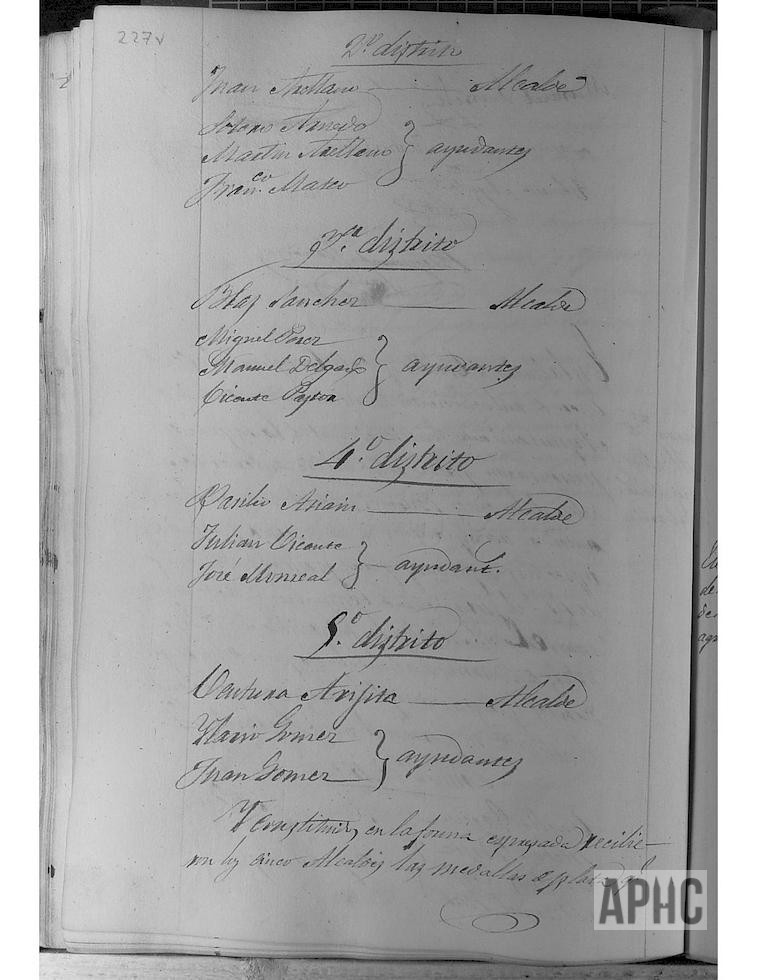 227v
2º distrito
Juan Arellano Alcalde
Arnedo
Martin Arellano ayudantes
Fran.co Mateo
distrito
Blas Sanchez Alcalde
Miguel Perez
Manuel Delgado ayudantes
Vicente Pastor
4.º distrito
Basilio Alcalde
Julian Vicente
José Monreal ayudant.
5.º distrito
Ventura Alcalde
Ylario Gomez
Juan Gomez ayudantes
Y constituidos en la forma espresada recibie-
ron los cinco Alcaldes las medallas de plata qe
APHC